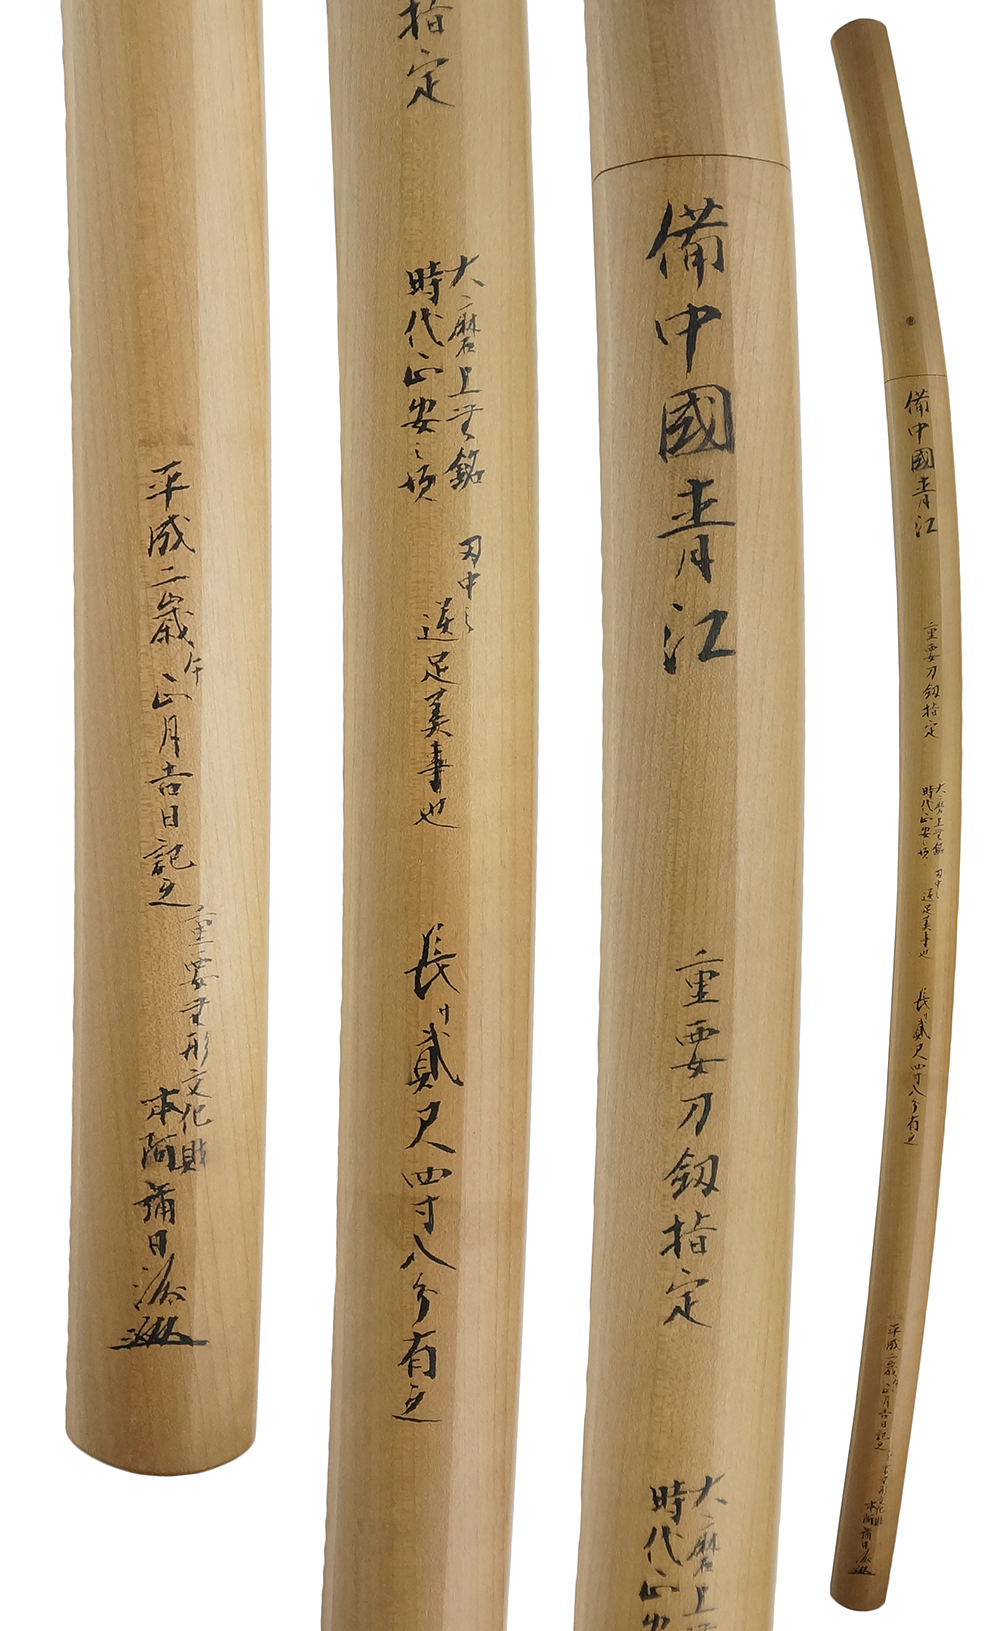 備中國青江
重要刀剱指定
大磨上無銘
時代正安之頃
刃中に
逆足美事也
長サ貳尺四寸八分有之
平成二歳午正月吉日記之
重要無形文化財
本阿彌日洲
指定
大磨上無
時代正安
備中國青江
重要刀剱指定
大磨上無銘
時代正安之頃
刃中に
逆足美事也
長サ貳尺四寸八分有之
平成二歳午正月吉日記之
重要無形文化財
本阿彌日洲